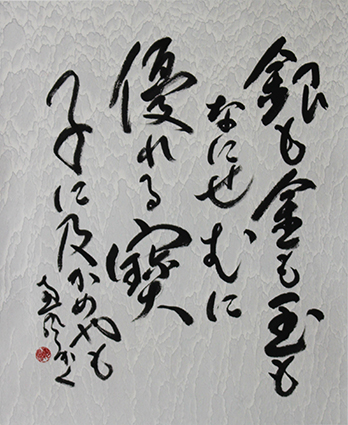 銀も金も玉も
なにせむに
優れる寶
子に及かめやも